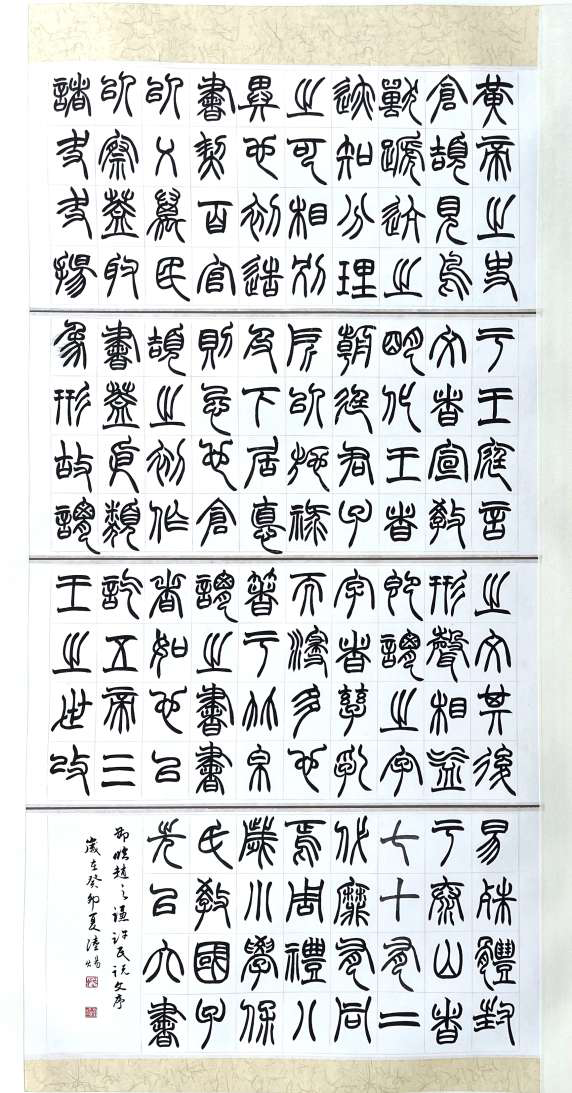 黄帝之史
倉頡見鳥
獸蹏迒之
迹知分理
之可相別
異也初造
書契百官
以乂萬民
以察蓋取
諸夬夬揚
于王庭言
文者宣教
明化王者
朝廷君子
所以施祿
及下居德
則忌也倉
頡之初作
書蓋依類
象形故謂
之文其後
形聲相益
即謂之字
字者孳乳
而浸多也
著于竹帛
謂之書書
者如也以
迄五帝三
王之世改
易殊體封
于泰山者
七十有二
代靡有同
焉周禮八
歲小學保
氏教國子
先以六書
節臨趙之謙許氏說文序
歲在癸卯夏